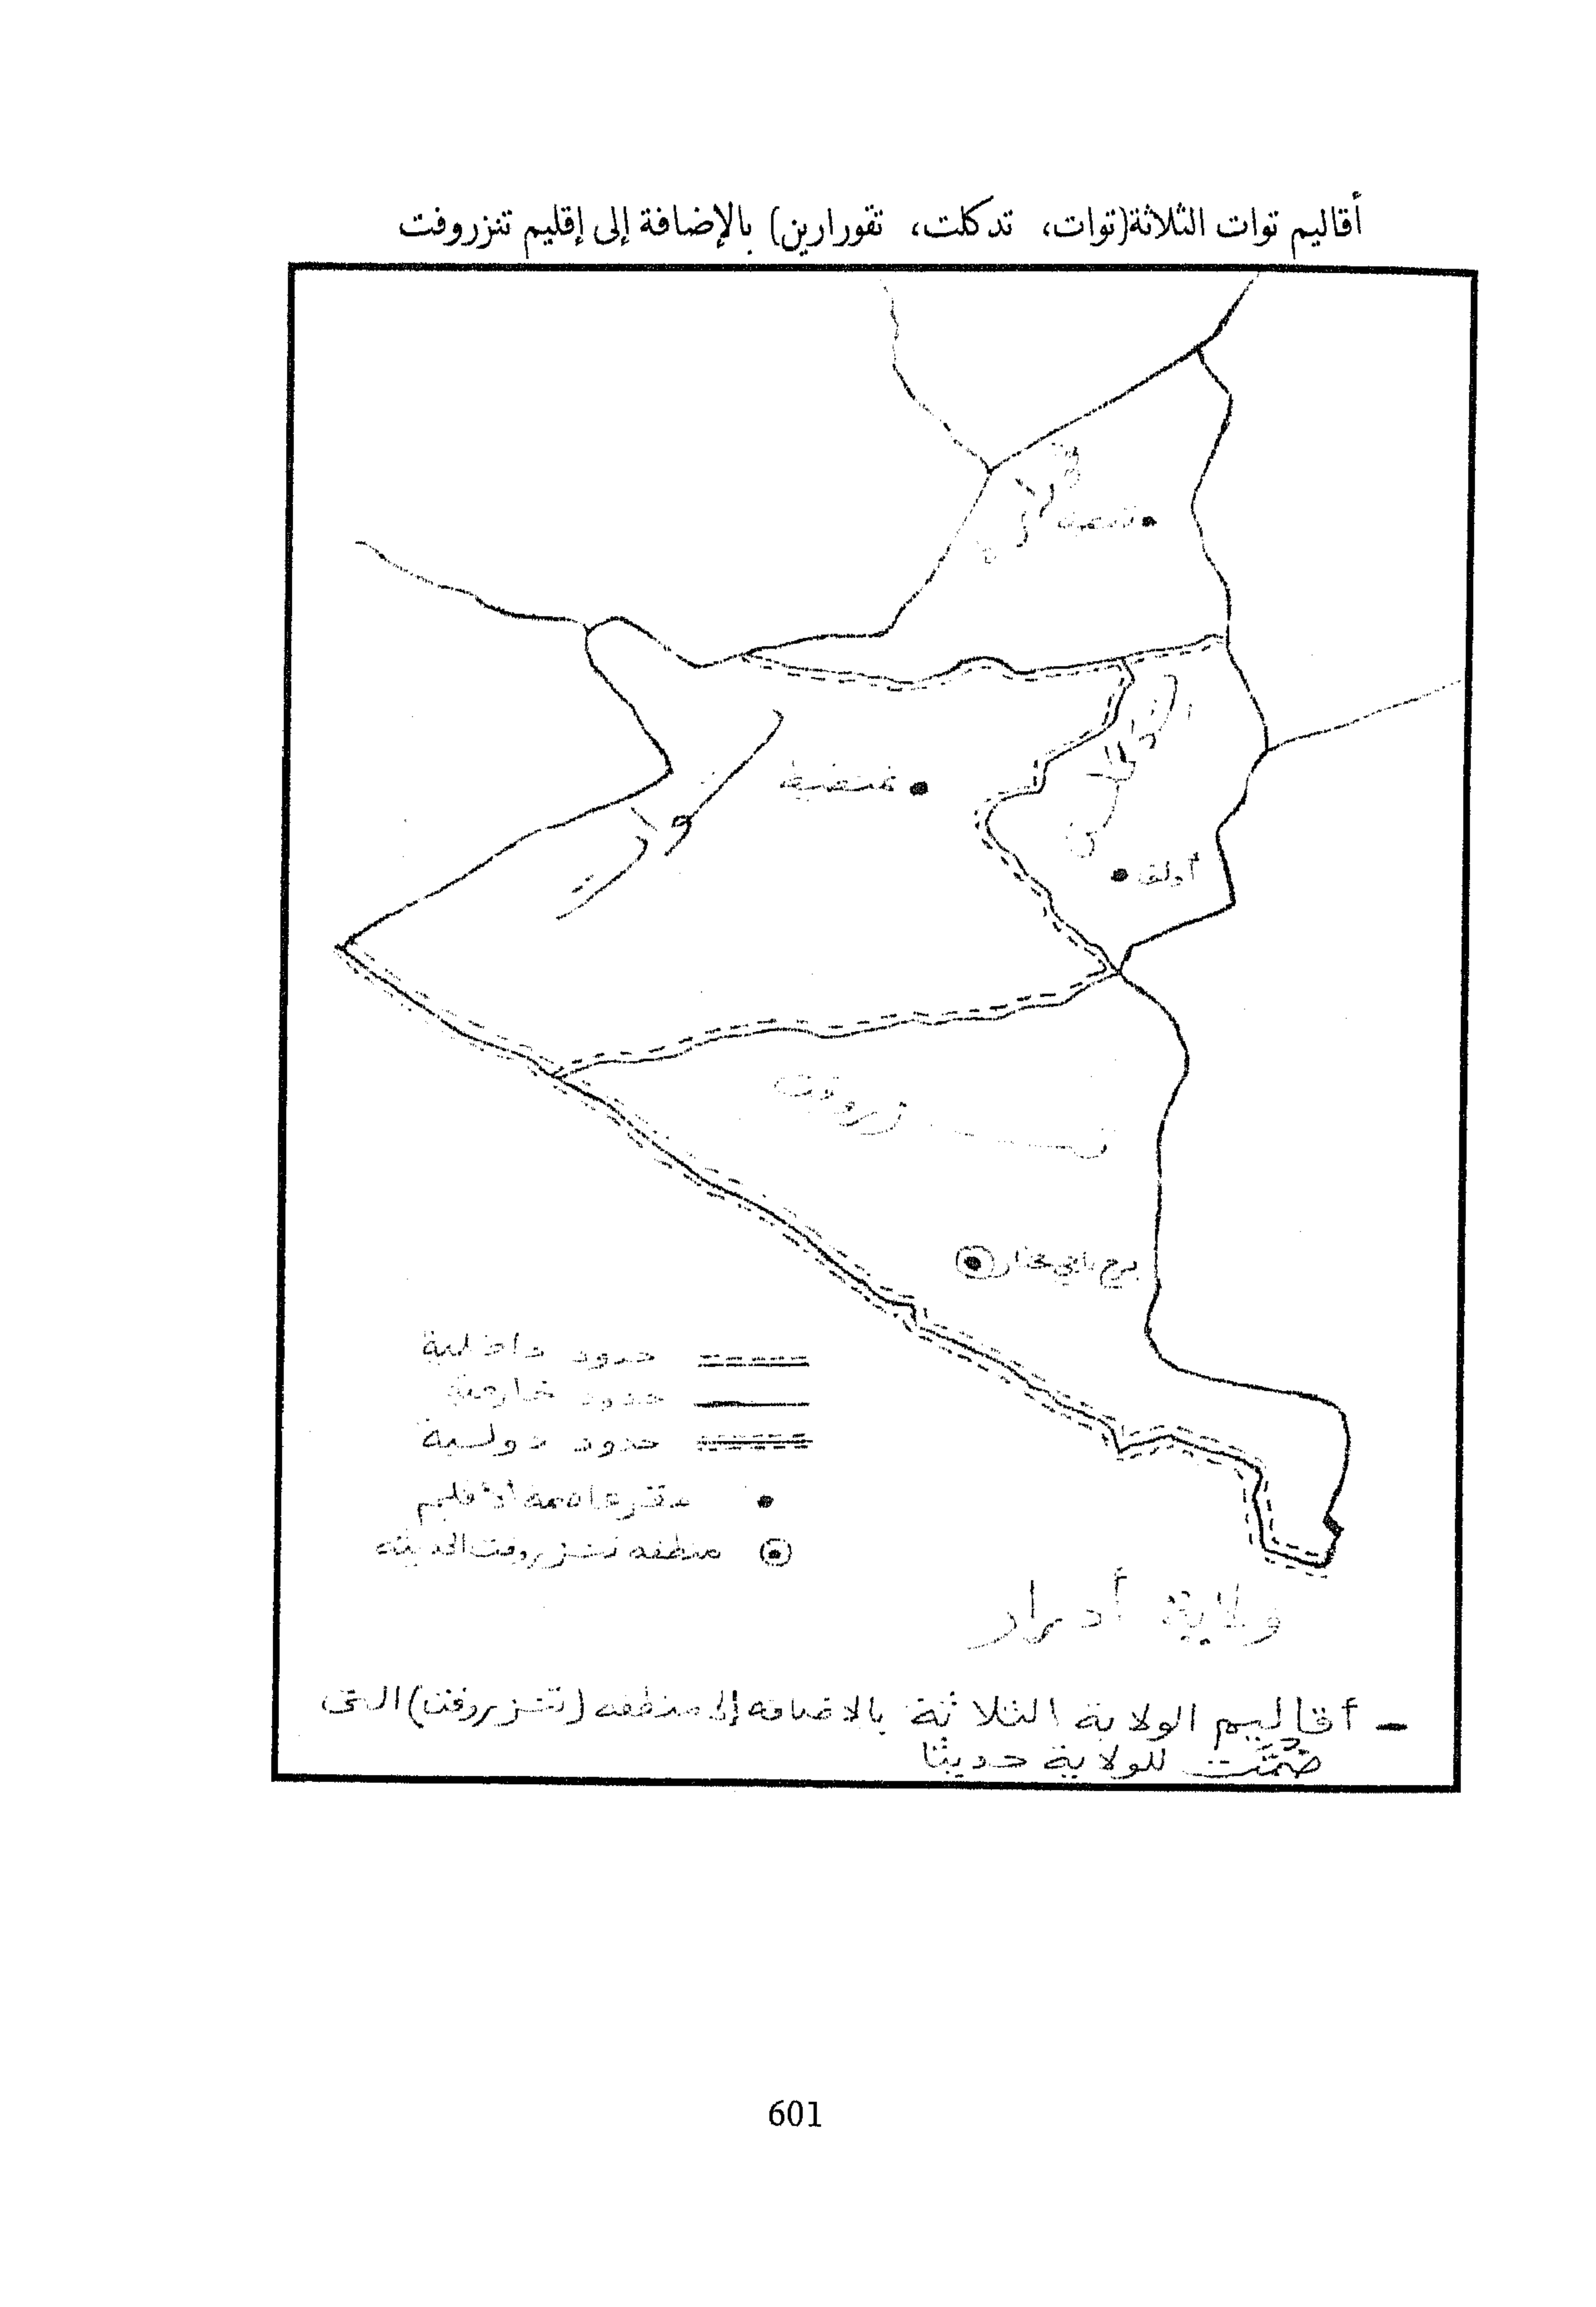 أقاليم توات الثلاثة(توات، تدكلت، تقورارين) بالإضافة إلى إقليم تنزروفت
تمنطيط
أولف
برج باجي مختار
حدود داخلية
حدود خارجية
حدود دولية
مقر عاصمة الأقليم
منطقه تنزروفت الحديثه
ولاية أدرار
– أقاليم الولاية الثلاثة بالاضافه إلى منطقه (تنزروفت) التى
ضُمَّت للولاية حديثا
601